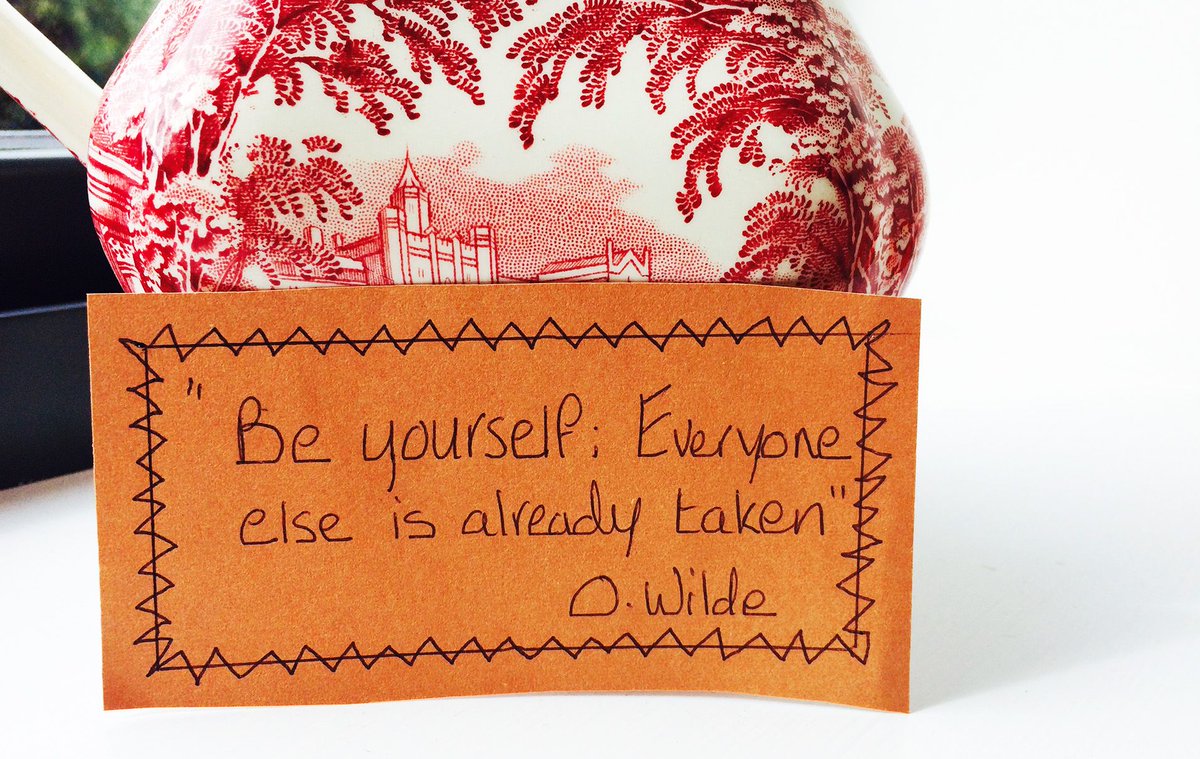 "Be yourself; Everyone
else is already taken"
O. Wilde